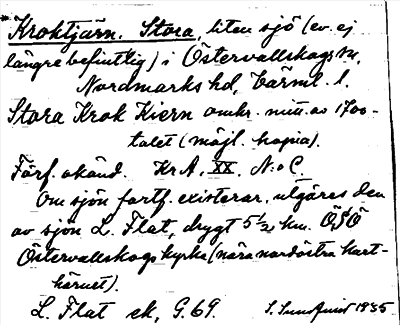 Kroktjärn, Stora, liten sjö (ev. ej
längre befintlig) i Östervallskogs sn,
Nordmarks hd, Värml. l.
Stora Krok Kiern omkr. mitt. av 1700-
talet (möjl. kopia).
Förf. okänd. KrA, XX. N:o C
Om sjön fortf. existerar, utgöres den
av sjön L. Flat, drygt 5 ½ km. ÖSÖ
Östervallskogs kyrka (nära nordöstra kart-
hörnet).
L. Flat ek, G. 69. S. Sundquist 1935